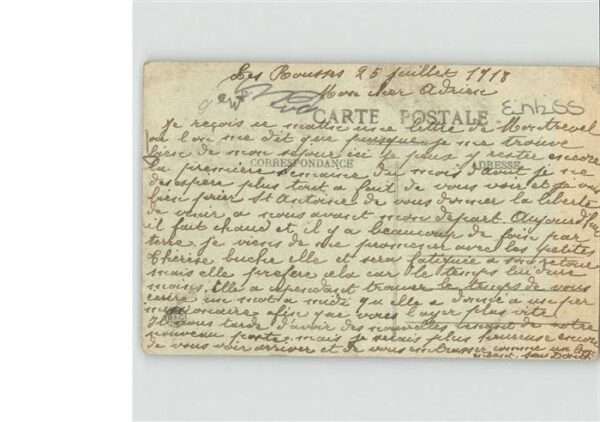 Les Rousses 25 juillet 1918
Mon cher Adrien
CARTE POSTALE
Je reçois ce matin une lettre de Montrevel
ou l'on me dit que puisque je me trouve
bien de mon sejour ici je puis y rester encore
CORRESPONDANCE
ADRESSE
la première semaine du mois d'aout je ne
desespere plus tout a fait de vous voir et je vais
bien prier St Antoine de vous donner la liberte
de venir a nous avant mon départ. Aujourd'hui
il fait chaud et il y a beaucoup de foin par
terre je viens de me promener avec les petites
Cherise buche elle et sera fatiguée a son retour
mais elle prefere cela car le temps lui dure
moins. Elle a cependant trouvé le temps de vous
ecrire un mot a midi qu'elle a donné a un per
missionnaire afin que vous l'ayez plus vite
Il nous tarde d'avoir des nouvelles de votre
nouveau poste mais je serais plus heureuse encore
de vous voir arriver et de vous embrasser comme un